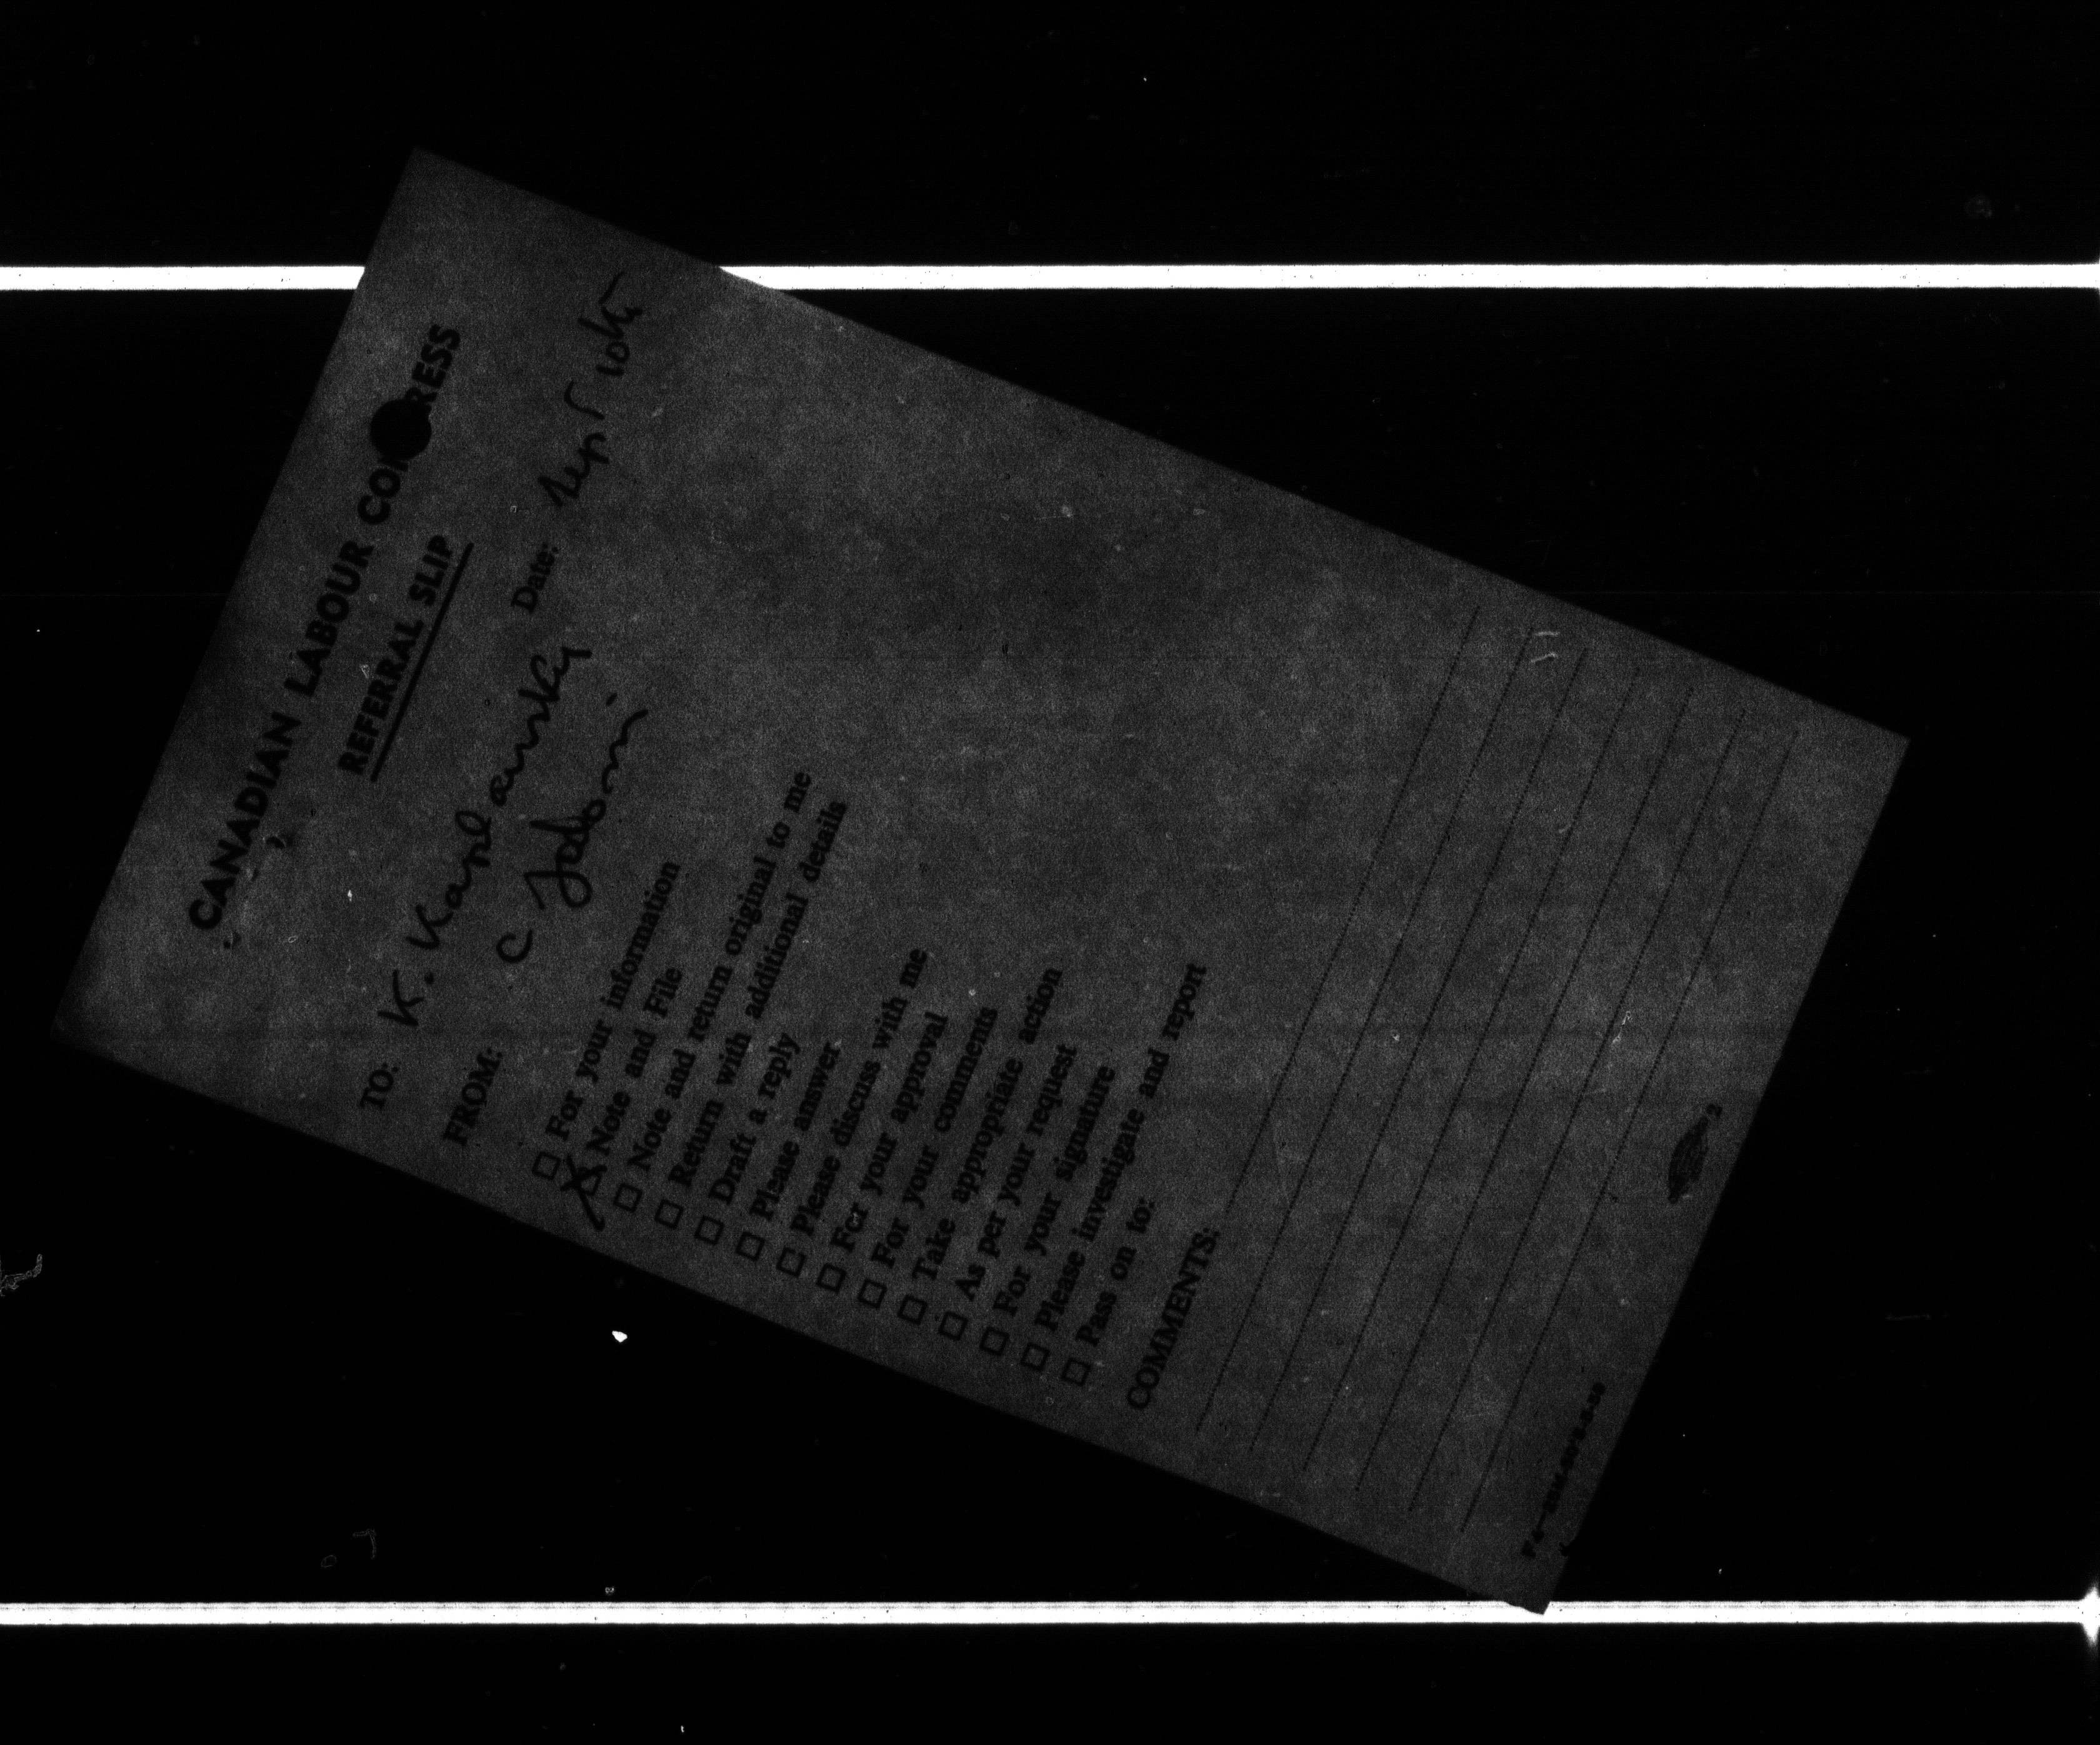 CANADIAN LABOUR CONGRESS
REFERRAL SLIP
TO: K. Kaplansky Date: Sept 10th
FROM: C Jodoin
☐ For your information
☒ Note and File
☐ Note and return original to me
☐ Return with additional details
☐ Draft a reply
☐ Please answer
☐ Please discuss with me
☐ For your approval
☐ For your comments
☐ Take appropriate action
☐ As per your request
☐ For your signature
☐ Please investigate and report
☐ Pass on to:
COMMENTS:
2